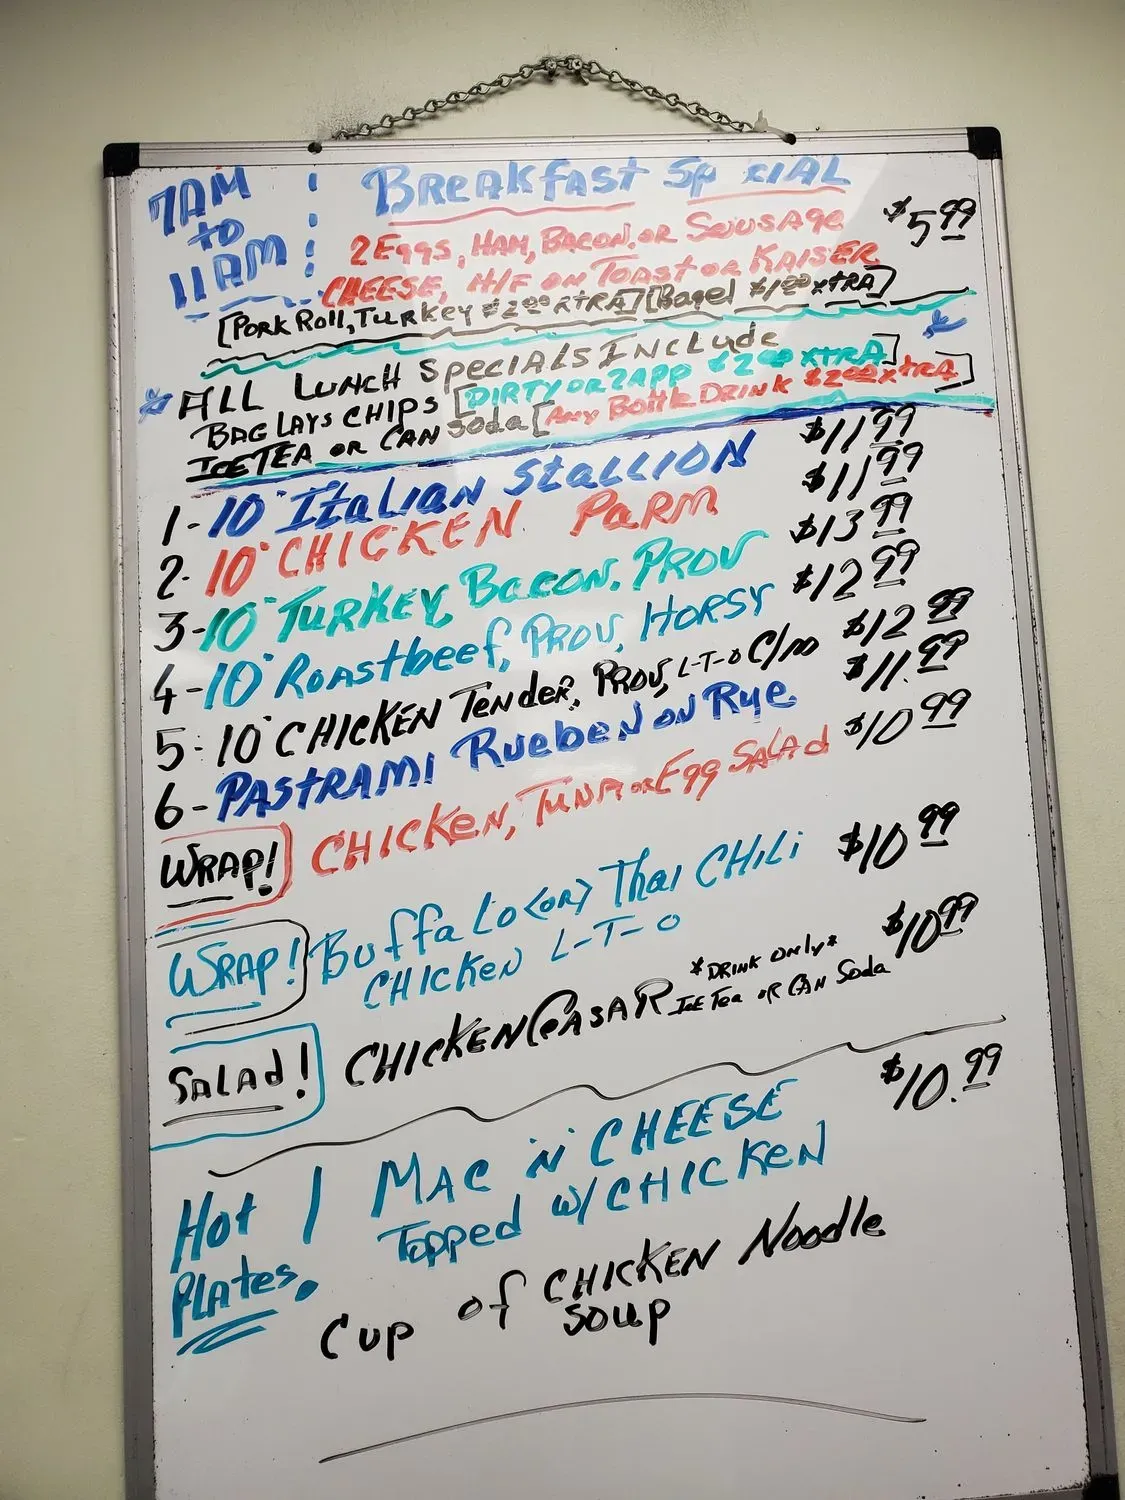 7AM to 11AM
BREAKfAST Sp cIAL
2 Eggs, HAM, BACON. OR SAUSAge $5.99
CHEESE, H/F ON TOAST OR KAISER
[PORK Roll, TURKEY $2.00 xtRA] [Bagel $1.00 xtRA]
* ALL LUNCH SpecIALS INCLude *
BAG LAYS CHIPS [DIRTY OR ZAPP $2.00 xtRA]
ICE TEA OR CAN Soda [ANY BOttLE DRINK $2.00 xtRA]
1-10" ItaLIAN StALLION $11.99
2-10" CHICKEN PaRM $11.99
3-10" TURKEY, BACON. PROV $13.99
4-10" ROAStbeef, PROV, HORSY $12.99
5-10" CHICKEN TeNdeR, PROV, L-T-O C/M $12.99
6-PAStRAMI RuebeN ON Rye $11.99
WRAP! CHICKEN, TUNA OR Egg SALAd $10.99
WRAP! BuffaLo <OR> THAI CHILi $10.99
CHICKEN L-T-O
SALAd! CHICKEN CeASAR *DRINK ONLY* $10.99
ICE TeA OR CAN Soda
Hot PLAtes! MAC 'N' CHEESE $10.99
Topped w/ CHICKEN
Cup of CHICKEN Noodle
Soup